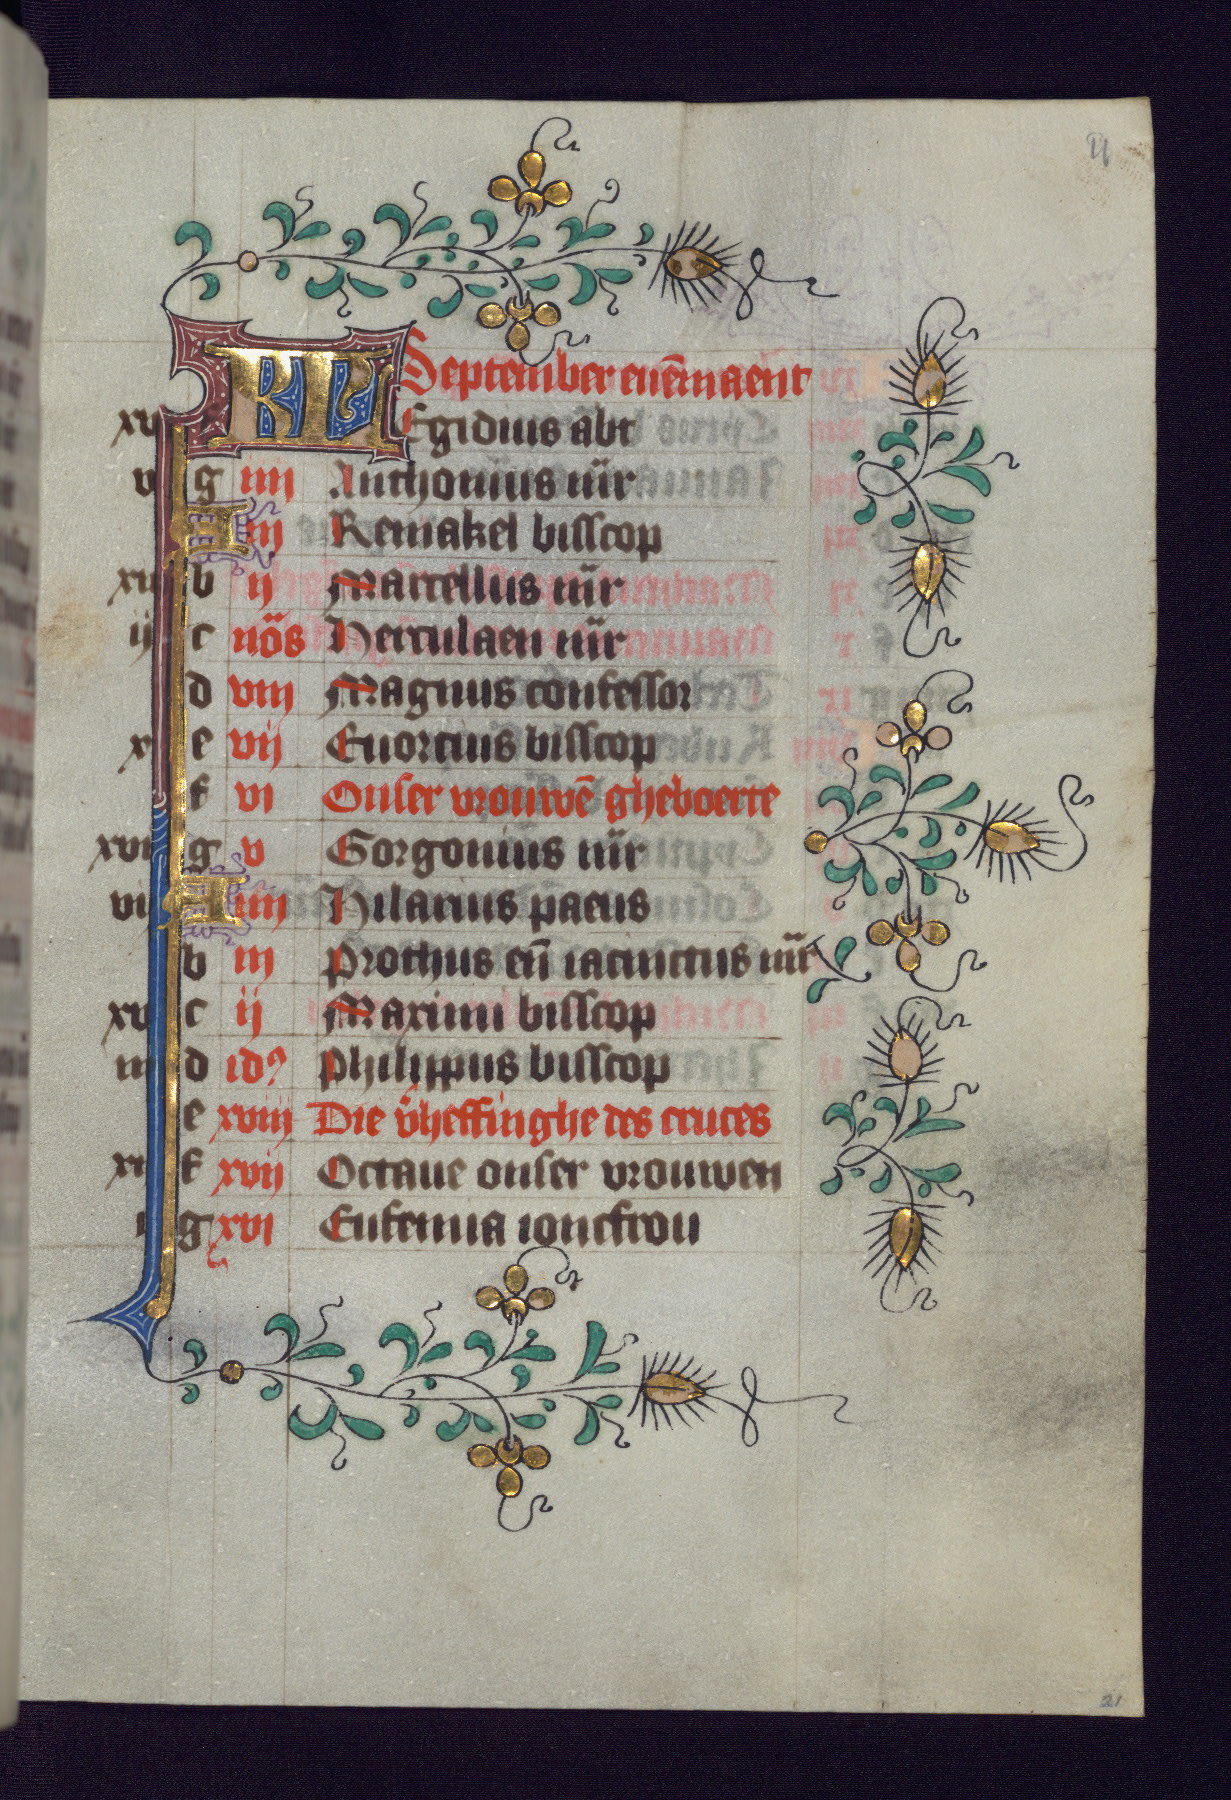 KL September eñ̄ maent
Egidius abt
v g iiij Anthonius m̄r
A iij Remakel bisscop
xiij b ij Marcellus m̄r
ij c nōs Herculaen m̄r
d viij Magnus confessor
x e vij Euortius bisscop
f vi Onser vrouwē gheboerte
xviij g v Gorgonius m̄r
vij A iiij Hilarius paeus
b iij Prothus eñ iacinctus m̄r
xv c ij Maximi bisscop
iiij d id9 Philippus bisscop
e xviij Die v̄heffinghe des cruces
xij f xvij Octaue onser vrouwen
i g xvi Eufemia ioncfrou
21